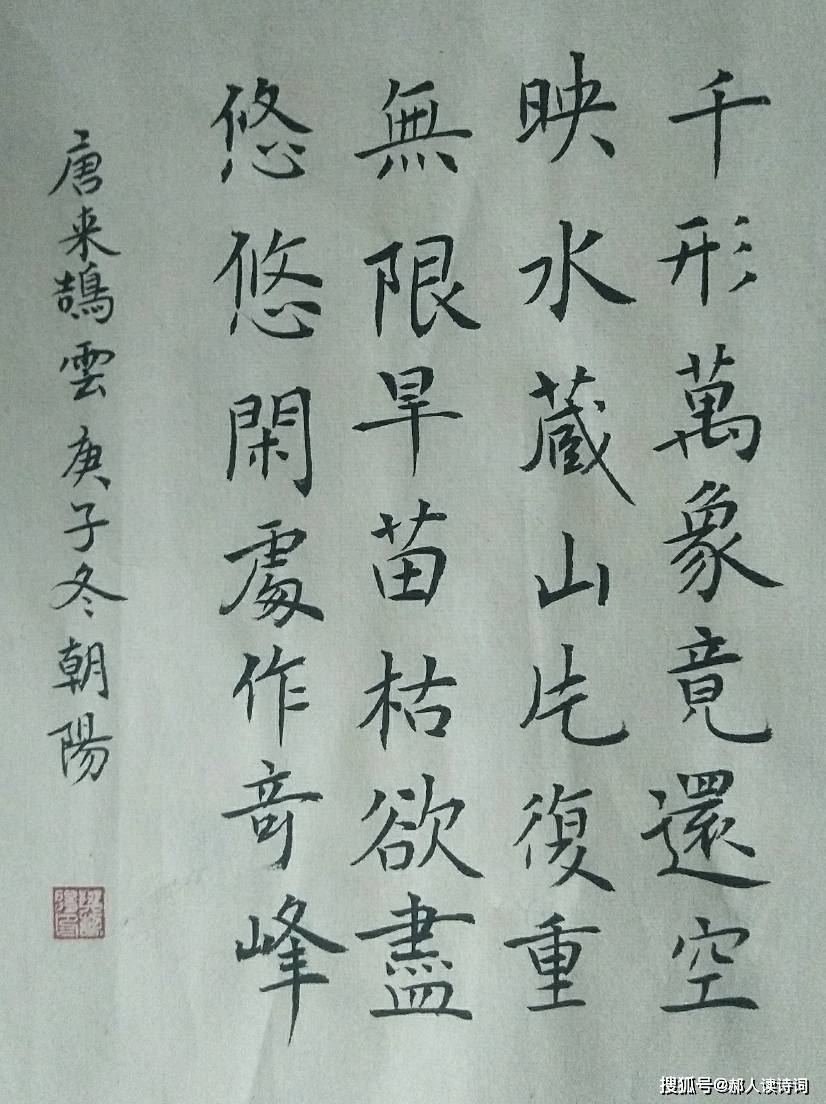 千形萬象竟還空
映水藏山片復重
無限旱苗枯欲盡
悠悠閑處作奇峰
唐来鵠雲庚子冬朝陽
搜狐号@郝人读诗词